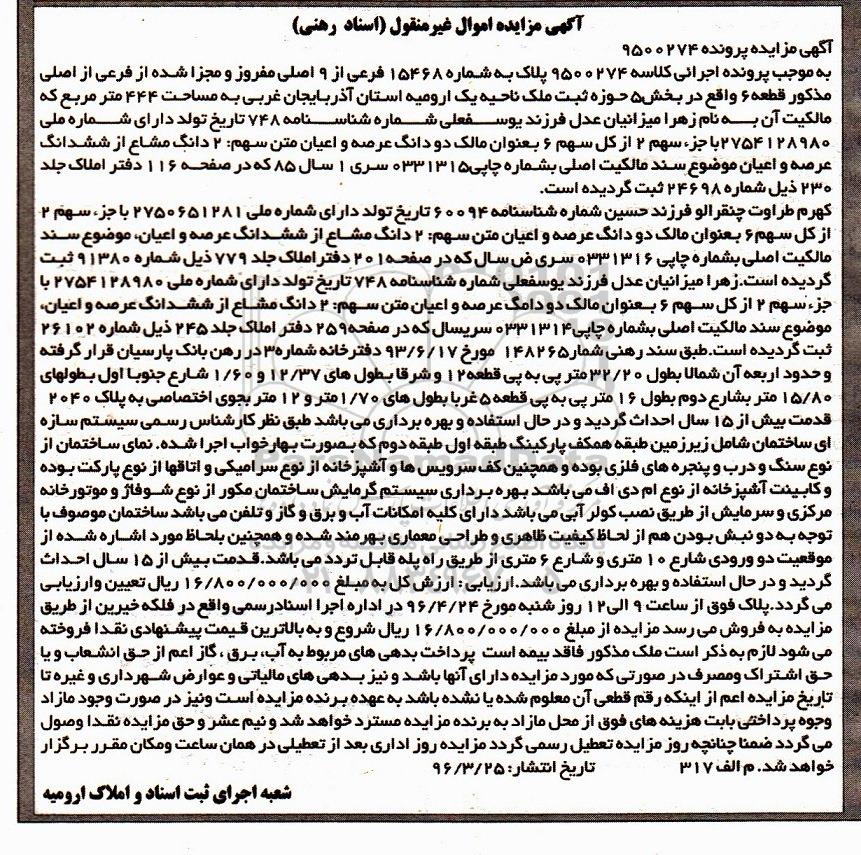 آگهی مزایده اموال غیرمنقول (اسناد رهنی)
آگهی مزایده پرونده ۹۵۰۰۲۷۴
به موجب پرونده اجرائی کلاسه ۹۵۰۰۲۷۴ پلاک به شماره ۱۵۴۶۸ فرعی از ۹ اصلی مفروز و مجزا شده از فرعی از اصلی
مذکور قطعه۶ واقع در بخش۵ حوزه ثبت ملک ناحیه یک ارومیه استان آذربایجان غربی به مساحت ۴۴۴ متر مربع که
مالکیت آن به نام زهرا میزانیان عدل فرزند یوسفعلی شماره شناسنامه ۷۴۸ تاریخ تولد دارای شماره ملی
۲۷۵۴۱۲۸۹۸۰با جزء سهم ۲ از کل سهم ۶ بعنوان مالک دو دانگ عرصه و اعیان متن سهم: ۲ دانگ مشاع از ششدانگ
عرصه و اعیان موضوع سند مالکیت اصلی بشماره چاپی۰۳۳۱۳۱۵ سری ۱ سال ۸۵ که در صفحه ۱۱۶ دفتر املاک جلد
۲۳۰ ذیل شماره ۲۴۶۹۸ ثبت گردیده است.
کهرم طراوت چنقرالو فرزند حسین شماره شناسنامه ۶۰۰۹۴ تاریخ تولد دارای شماره ملی ۲۷۵۰۶۵۱۲۸۱ با جزء سهم ۲
از کل سهم۶ بعنوان مالک دو دانگ عرصه و اعیان متن سهم: ۲ دانگ مشاع از ششدانگ عرصه و اعیان، موضوع سند
مالکیت اصلی بشماره چاپی ۰۳۳۱۳۱۶ سری ض سال که در صفحه۲۰۱ دفتراملاک جلد ۷۷۹ ذیل شماره ۹۱۳۸۰ ثبت
گردیده است.زهرا میزانیان عدل فرزند یوسفعلی شماره شناسنامه ۷۴۸ تاریخ تولد دارای شماره ملی ۲۷۵۴۱۲۸۹۸۰ با
جزء سهم ۲ از کل سهم ۶ بعنوان مالک دو دانگ عرصه و اعیان متن سهم: ۲ دانگ مشاع از ششدانگ عرصه و اعیان،
موضوع سند مالکیت اصلی بشماره چاپی۰۳۳۱۳۱۴ سریسال که در صفحه۲۵۹ دفتر املاک جلد ۲۴۵ ذیل شماره ۲۶۱۰۲
ثبت گردیده است.طبق سند رهنی شمار۱۴۸۲۶۵ مورخ ۹۳/۶/۱۷ دفترخانه شماره۳ در رهن بانک پارسیان قرار گرفته
و حدود اربعه آن شمالا بطول ۳۲/۲۰ متر پی به پی قطعه۱۲ و شرقا بطول های ۱۲/۳۷ و ۱/۶۰ شارع جنوبا اول بطولهای
۱۵/۸۰ متر بشارع دوم بطول ۱۶ متر پی به پی قطعه۵ غربا بطول های ۱/۷۰متر و ۱۲ متر بجوی اختصاصی به پلاک ۲۰۴۰
قدمت بیش از ۱۵ سال احداث گردید و در حال استفاده و بهره برداری می باشد طبق نظر کارشناس رسمی سیستم سازه
ای ساختمان شامل زیرزمین طبقه همکف پارکینگ طبقه اول طبقه دوم که بصورت بهارخواب اجرا شده. نمای ساختمان از
نوع سنگ و درب و پنجره های فلزی بوده و همچنین کف سرویس ها و آشپزخانه از نوع سرامیکی و اتاقها از نوع پارکت بوده
و کابینت آشپزخانه از نوع ام دی اف می باشد بهره برداری سیستم گرمایش ساختمان مکور از نوع شوفاژ و موتورخانه
مرکزی و سرمایش از طریق نصب کولر آبی می باشد دارای کلیه امکانات آب و برق و گاز و تلفن می باشد ساختمان موصوف با
توجه به دو نبش بودن هم از لحاظ کیفیت ظاهری و طراحی معماری بهرمند شده و همچنین بلحاظ مورد اشاره شده از
موقعیت دو ورودی شارع ۱۰ متری و شارع ۶ متری از طریق راه پله قابل تردد می باشد.قدمت بیش از ۱۵ سال احداث
گردید و در حال استفاده و بهره برداری می باشد.ارزیابی: ارزش کل به مبلغ ۱۶/۸۰۰/۰۰۰/۰۰۰ ریال تعیین وارزیابی
می گردد.پلاک فوق از ساعت ۹ الی۱۲ روز شنبه مورخ ۹۶/۴/۲۴ در اداره اجرا اسنادرسمی واقع در فلکه خیرین از طریق
مزایده به فروش می رسد مزایده از مبلغ ۱۶/۸۰۰/۰۰۰/۰۰۰ ریال شروع و به بالاترین قیمت پیشنهادی نقدا فروخته
می شود لازم به ذکر است ملک مذکور فاقد بیمه است پرداخت بدهی های مربوط به آب، برق ، گاز اعم از حق انشعاب و یا
حق اشتراک ومصرف در صورتی که مورد مزایده دارای آنها باشد و نیز بدهی های مالیاتی و عوارض شهرداری و غیره تا
تاریخ مزایده اعم از اینکه رقم قطعی آن معلوم شده یا نشده باشد به عهده برنده مزایده است ونیز در صورت وجود مازاد
وجوه پرداختی بابت هزینه های فوق از محل مازاد به برنده مزایده مسترد خواهد شد و نیم عشر و حق مزایده نقدا وصول
می گردد ضمنا چنانچه روز مزایده تعطیل رسمی گردد مزایده روز اداری بعد از تعطیلی در همان ساعت ومکان مقرر برگزار
خواهد شد. م الف ۳۱۷ تاریخ انتشار: ۹۶/۳/۲۵
شعبه اجرای ثبت اسناد و املاک ارومیه
ParsNamadData